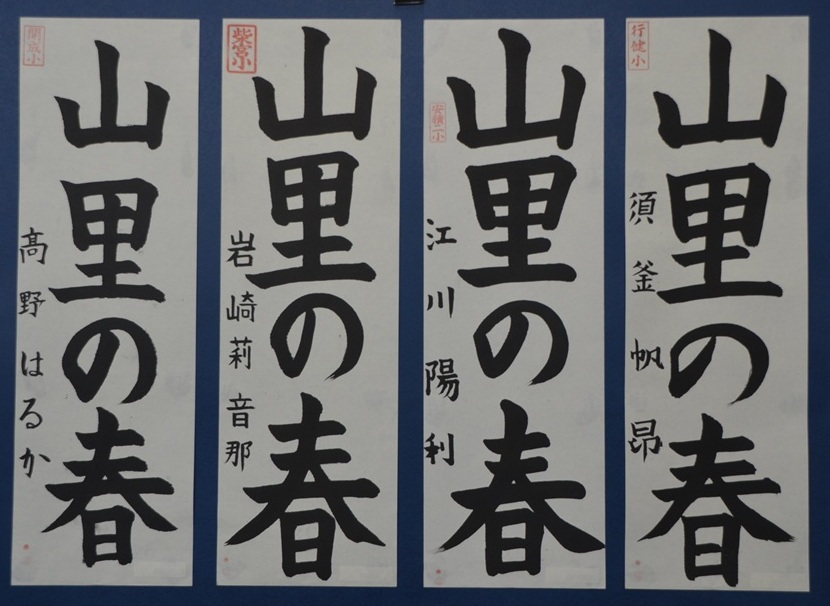 開成小
山里の春
高野はるか
柴宮小
山里の春
岩崎莉音那
安積二小
山里の春
江川陽利
行健小
山里の春
須釜帆昂